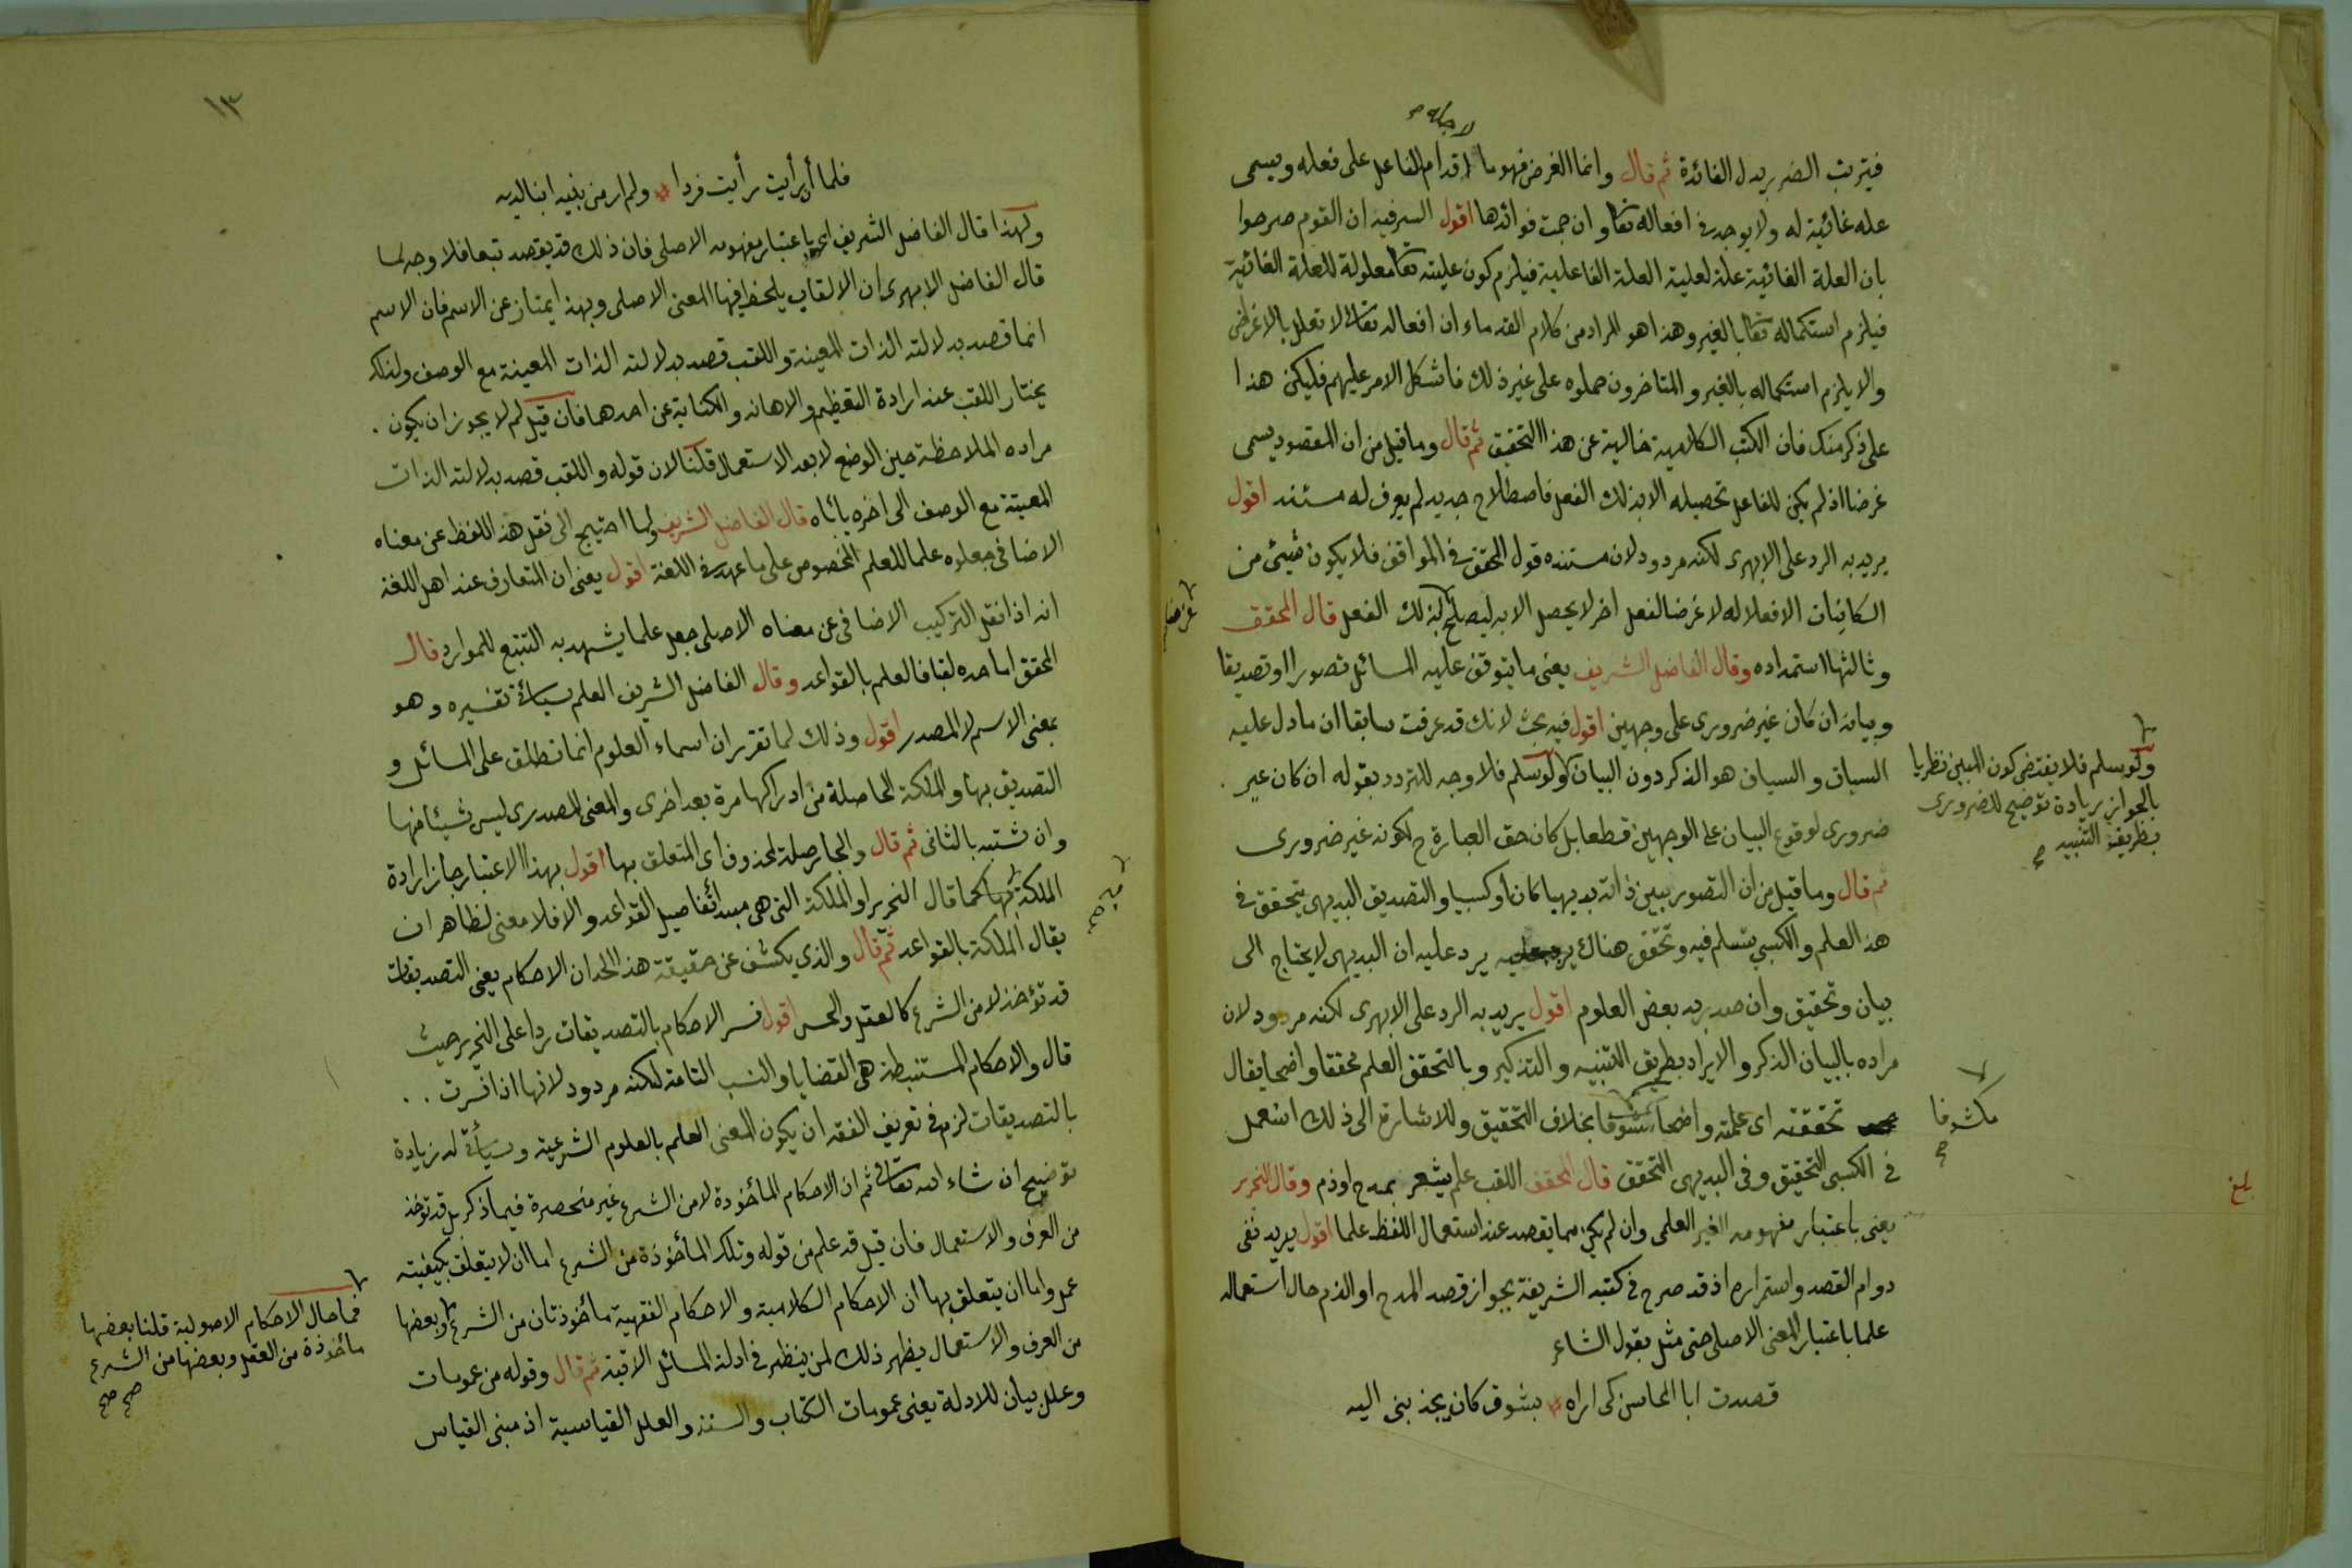 لاجله صح
فيترتب الضر بدل الفائدة ثم قال وانما الغرض فهو ما اقدام الفاعل على فعله ويسمى
علة غائية له ولا يوجد في افعاله تعا وان جمت فوائدها اقول السر فيه ان القوم صرحوا
بان العلة الغائية علة لعلية العلة الفاعلية فيلزم كون عليته تعا معلولة للعلة الغائية
فيلزم استكماله تعا بالغير وهذا هو المراد من كلام القدماء ان افعاله تعالى لا تعلل بالاغراض
والا يلزم استكماله بالغير والمتاخرون حملوه على غير ذلك فاشكل الامر عليهم فليكن هذا
على ذكر منك فان الكتب الكلامية خالية عن هذا التحقيق ثم قال وما قيل من ان المقصود يسمى
غرضا اذ لم يكن للفاعل تحصيله الا بذلك الفعل فاصطلاح جديد لم يعرف له مستند اقول
يريد به الرد على الابهرى لكنه مردود لان مستنده قول المحقق في المواقف فلا يكون شيئ من
الكاينات الا فعلا له لا غرضا لفعل اخر لا يحصل الا به ليصلح لذلك الفعل قال المحقق
غرضا
وثالثها استمداده وقال الفاضل الشريف يعنى ما يتوقف عليه المسائل تصورا او تصديقا
وبيانه ان كان غير ضرورى على وجهين اقول فيه بحث لانك قد عرفت سابقا ان ما دل عليه
السباق والسياق هو الذكر دون البيان ولو سلم فلا وجه للتردد بقوله ان كان غير
ولو سلم فلا يقتضى كون المبين نظريا
بالجواز زيادة توضيح للضرورى
بطريق التنبيه صح
ضرورى لوقوع البيان على الوجهين قطعا بل كان حق العبارة ح لكونه غير ضرورى
ثم قال وما قيل من ان التصور يبين ذاته بديهيا كان او كسبيا والتصديق البديهى يتحقق في
هذا العلم والكسبي يتسلم فيه وتحقق هناك يرد عليه ان البديهى لا يحتاج الى
بيان وتحقيق وان صدر به بعض العلوم اقول يريد به الرد على الابهرى لكنه مردود لان
مراده بالبيان الذكر والايراد بطريق التنبيه والتذكير وبالتحقق العلم محققا واضحا يقال
تحققته اى علمته واضحا مكشوفا بخلاف التحقيق وللاشارة الى ذلك استعمل
مكشوفا صح
في الكسبى التحقيق وفى البديهى التحقق قال المحقق اللقب علم يشعر بمدح او ذم وقال النحرير
بلغ
يعنى باعتبار مفهومه الغير العلمى وان لم يكن مما يقصد عند استعمال اللفظ علما اقول يريد نفى
دوام القصد واستمراره اذ قد صرح في كتبه الشريفة بجواز قصد المدح او الذم حال استعماله
علما باعتبار المعنى الاصلى حتى مثل بقول الشاعر
قصدت ابا المحاسن كى اراه بشوق كان يجذبنى اليه
١٣
فلما أن رأيت رأيت فردا ولم ار من بنيه ابنا لديه
ولهذا قال الفاضل الشريف اى باعتبار مفهومه الاصلى فان ذلك قد يقصد تبعا فلا وجه لما
قال الفاضل الابهرى ان الالقاب يلحظ فيها المعنى الاصلى وبهذا يمتاز عن الاسم فان الاسم
انما قصد بدلالته الذات المعينة واللقب قصد بدلالته الذات المعينة مع الوصف ولذلك
يختار اللقب عند ارادة التعظيم والاهانه والكناية عن احدهما فان قيل لم لا يجوز ان يكون
مراده الملاحظة حين الوضع لا بعد الاستعمال قلنا لان قوله واللقب قصد بدلالته الذات
المعينة مع الوصف الى اخره ياباه قال الفاضل الشريف ولما احتيج الى نقل هذا اللفظ عن معناه
الاضافى جعلوه علما للعلم المخصوص على ما عهد في اللغة اقول يعنى ان المتعارف عند اهل اللغة
انه اذا نقل التركيب الاضافى عن معناه الاصلى جعل علما يشهد به التتبع للموارد قال
المحقق اما حده لقبا فالعلم بالقواعد وقال الفاضل الشريف العلم سيأتى تفسيره وهو
بمعنى الاسم لا المصدر اقول وذلك لما تقرر ان اسماء العلوم انما تطلق على المسائل و
التصديق بها والملكة الحاصلة من ادراكها مرة بعد اخرى والمعنى المصدرى ليس شيئا منها
وان شتبه بالثانى ثم قال والجار صلة لمحذوف أى المتعلق بها اقول بهذا الاعتبار جاز ارادة
الملكة بها كما قال النحرير او الملكة التى هى مبدأ تفاصيل القواعد والا فلا معنى لظاهر ان
يقال الملكة بالقواعد ثم قال والذي يكشف عن حقيقة هذا الحد ان الاحكام يعنى التصديقات
قد تؤخذ لا من الشرع كالعقل والحس اقول فسر الاحكام بالتصديقات ردا على النحرير حيث
قال والاحكام المستنبطة هى القضايا والنسب التامة لكنه مردود لانها اذا فسرت
بالتصديقات لزم في تعريف الفقه ان يكون المعنى العلم بالعلوم الشرعية وسيأتى له زيادة
توضيح ان شاء الله تعالى ثم ان الاحكام المأخوذة لا من الشرع غير منحصرة فيما ذكر بل قد تؤخذ
من العرف والاستعمال فان قيل قد علم من قوله وتلك المأخوذة من الشرع اما ان لا يتعلق بكيفيته
عمل واما ان يتعلق بها ان الاحكام الكلامية والاحكام الفقهية مأخوذتان من الشرع وبعضها
فما حال الاحكام الاصولية قلنا بعضها
مأخوذة من العقل وبعضها من الشرع
صح صح
من العرف والاستعمال يظهر ذلك لمن ينظر في ادلة المسائل الاتية ثم قال وقوله من عمومات
وعلل بيان للادلة يعنى عمومات الكتاب والسنة والعلل القياسية اذ مبنى القياس